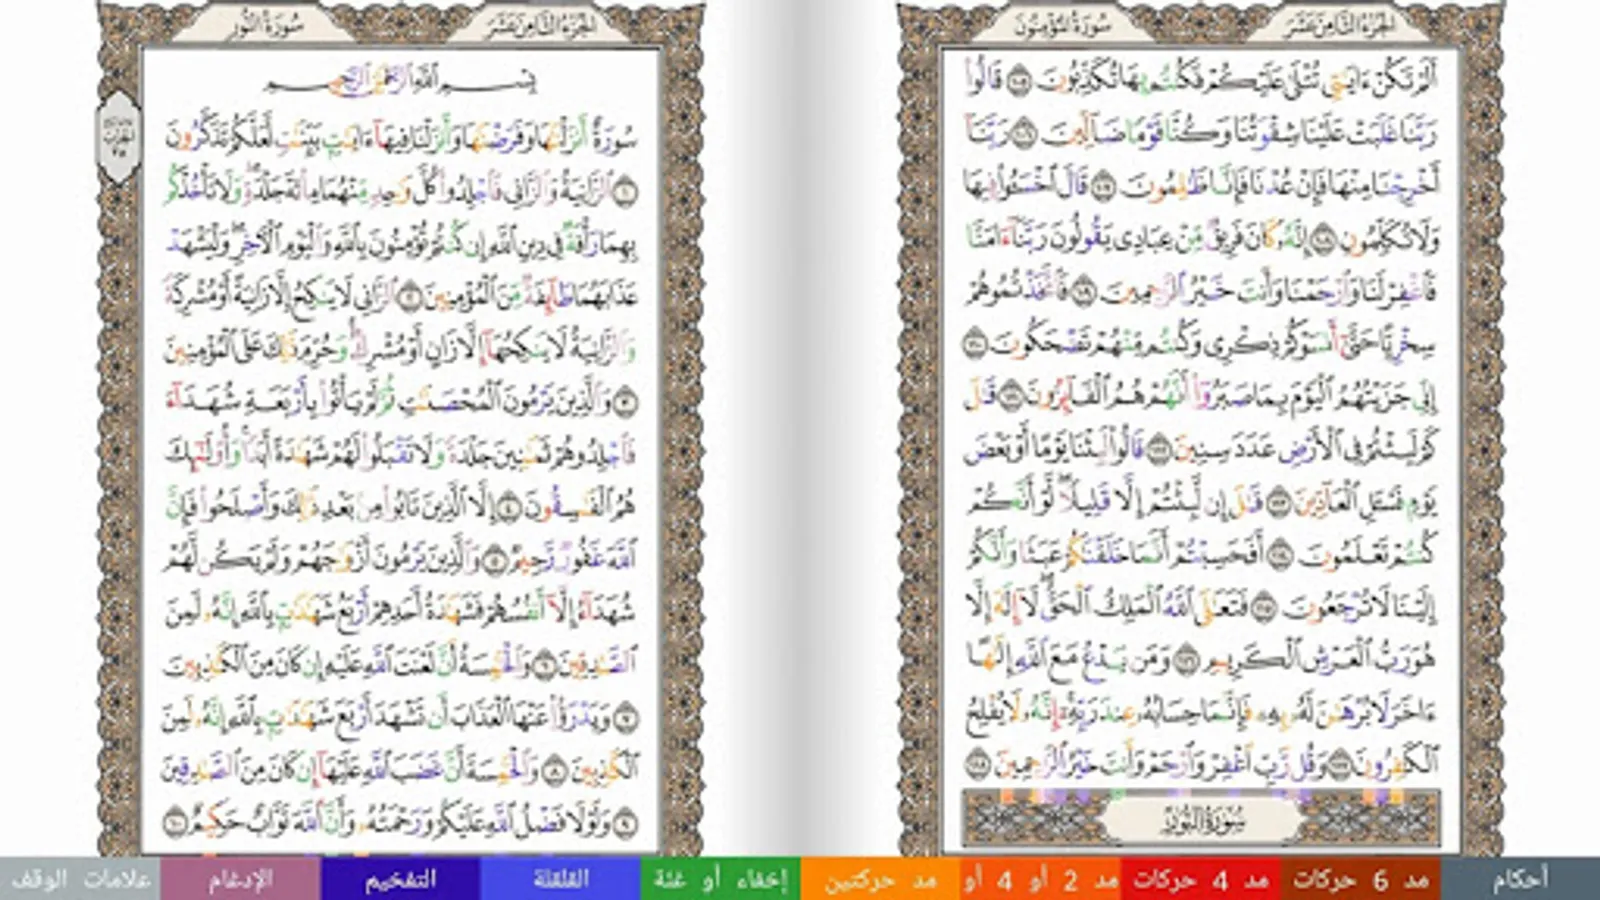 الجزء الثامن عشر
سورة المؤمنون
أَلَمْ تَكُنْ ءَايَٰتِى تُتْلَىٰ عَلَيْكُمْ فَكُنتُم بِهَا تُكَذِّبُونَ ١٠٥ قَالُوا۟
رَبَّنَا غَلَبَتْ عَلَيْنَا شِقْوَتُنَا وَكُنَّا قَوْمًا ضَآلِّينَ ١٠٦ رَبَّنَآ
أَخْرِجْنَا مِنْهَا فَإِنْ عُدْنَا فَإِنَّا ظَٰلِمُونَ ١٠٧ قَالَ ٱخْسَـُٔوا۟ فِيهَا
وَلَا تُكَلِّمُونِ ١٠٨ إِنَّهُۥ كَانَ فَرِيقٌ مِّنْ عِبَادِى يَقُولُونَ رَبَّنَآ ءَامَنَّا
فَٱغْفِرْ لَنَا وَٱرْحَمْنَا وَأَنتَ خَيْرُ ٱلرَّٰحِمِينَ ١٠٩ فَٱتَّخَذْتُمُوهُمْ
سِخْرِيًّا حَتَّىٰٓ أَنسَوْكُمْ ذِكْرِى وَكُنتُم مِّنْهُمْ تَضْحَكُونَ ١١٠
إِنِّى جَزَيْتُهُمُ ٱلْيَوْمَ بِمَا صَبَرُوٓا۟ أَنَّهُمْ هُمُ ٱلْفَآئِزُونَ ١١١ قَٰلَ
كَمْ لَبِثْتُمْ فِى ٱلْأَرْضِ عَدَدَ سِنِينَ ١١٢ قَالُوا۟ لَبِثْنَا يَوْمًا أَوْ بَعْضَ
يَوْمٍ فَسْـَٔلِ ٱلْعَآدِّينَ ١١٣ قَٰلَ إِن لَّبِثْتُمْ إِلَّا قَلِيلًا لَّوْ أَنَّكُمْ
كُنتُمْ تَعْلَمُونَ ١١٤ أَفَحَسِبْتُمْ أَنَّمَا خَلَقْنَٰكُمْ عَبَثًا وَأَنَّكُمْ
إِلَيْنَا لَا تُرْجَعُونَ ١١٥ فَتَعَٰلَى ٱللَّهُ ٱلْمَلِكُ ٱلْحَقُّ لَآ إِلَٰهَ إِلَّا
هُوَ رَبُّ ٱلْعَرْشِ ٱلْكَرِيمِ ١١٦ وَمَن يَدْعُ مَعَ ٱللَّهِ إِلَٰهًا
ءَاخَرَ لَا بُرْهَٰنَ لَهُۥ بِهِۦ فَإِنَّمَا حِسَابُهُۥ عِندَ رَبِّهِۦٓ إِنَّهُۥ لَا يُفْلِحُ
ٱلْكَٰفِرُونَ ١١٧ وَقُل رَّبِّ ٱغْفِرْ وَٱرْحَمْ وَأَنتَ خَيْرُ ٱلرَّٰحِمِينَ ١١٨
سُورَةُ النُّورِ
الجزء الثامن عشر
سورة النور
بِسْمِ ٱللَّهِ ٱلرَّحْمَٰنِ ٱلرَّحِيمِ
سُورَةٌ أَنزَلْنَٰهَا وَفَرَضْنَٰهَا وَأَنزَلْنَا فِيهَآ ءَايَٰتٍۭ بَيِّنَٰتٍ لَّعَلَّكُمْ تَذَكَّرُونَ
١ ٱلزَّانِيَةُ وَٱلزَّانِى فَٱجْلِدُوا۟ كُلَّ وَٰحِدٍ مِّنْهُمَا مِا۟ئَةَ جَلْدَةٍ وَلَا تَأْخُذْكُم
بِهِمَا رَأْفَةٌ فِى دِينِ ٱللَّهِ إِن كُنتُمْ تُؤْمِنُونَ بِٱللَّهِ وَٱلْيَوْمِ ٱلْءَاخِرِ وَلْيَشْهَدْ
عَذَابَهُمَا طَآئِفَةٌ مِّنَ ٱلْمُؤْمِنِينَ ٢ ٱلزَّانِى لَا يَنكِحُ إِلَّا زَانِيَةً أَوْ مُشْرِكَةً
وَٱلزَّانِيَةُ لَا يَنكِحُهَآ إِلَّا زَانٍ أَوْ مُشْرِكٌ وَحُرِّمَ ذَٰلِكَ عَلَى ٱلْمُؤْمِنِينَ
٣ وَٱلَّذِينَ يَرْمُونَ ٱلْمُحْصَنَٰتِ ثُمَّ لَمْ يَأْتُوا۟ بِأَرْبَعَةِ شُهَدَآءَ
فَٱجْلِدُوهُمْ ثَمَٰنِينَ جَلْدَةً وَلَا تَقْبَلُوا۟ لَهُمْ شَهَٰدَةً أَبَدًا وَأُو۟لَٰٓئِكَ
هُمُ ٱلْفَٰسِقُونَ ٤ إِلَّا ٱلَّذِينَ تَابُوا۟ مِنۢ بَعْدِ ذَٰلِكَ وَأَصْلَحُوا۟ فَإِنَّ
ٱللَّهَ غَفُورٌ رَّحِيمٌ ٥ وَٱلَّذِينَ يَرْمُونَ أَزْوَٰجَهُمْ وَلَمْ يَكُن لَّهُمْ
شُهَدَآءُ إِلَّآ أَنفُسُهُمْ فَشَهَٰدَةُ أَحَدِهِمْ أَرْبَعُ شَهَٰدَٰتٍۭ بِٱللَّهِ إِنَّهُۥ لَمِنَ
ٱلصَّٰدِقِينَ ٦ وَٱلْخَٰمِسَةُ أَنَّ لَعْنَتَ ٱللَّهِ عَلَيْهِ إِن كَانَ مِنَ ٱلْكَٰذِبِينَ
٧ وَيَدْرَؤُا۟ عَنْهَا ٱلْعَذَابَ أَن تَشْهَدَ أَرْبَعَ شَهَٰدَٰتٍۭ بِٱللَّهِ إِنَّهُۥ لَمِنَ
ٱلْكَٰذِبِينَ ٨ وَٱلْخَٰمِسَةَ أَنَّ غَضَبَ ٱللَّهِ عَلَيْهَآ إِن كَانَ مِنَ ٱلصَّٰدِقِينَ
٩ وَلَوْلَا فَضْلُ ٱللَّهِ عَلَيْكُمْ وَرَحْمَتُهُۥ وَأَنَّ ٱللَّهَ تَوَّابٌ حَكِيمٌ ١٠
أحكام
مد 6 حركات
مد 4 حركات
مد 2 أو 4 أو
مد حركتين
إخفاء أو غنة
القلقلة
التفخيم
الإدغام
علامات الوقف